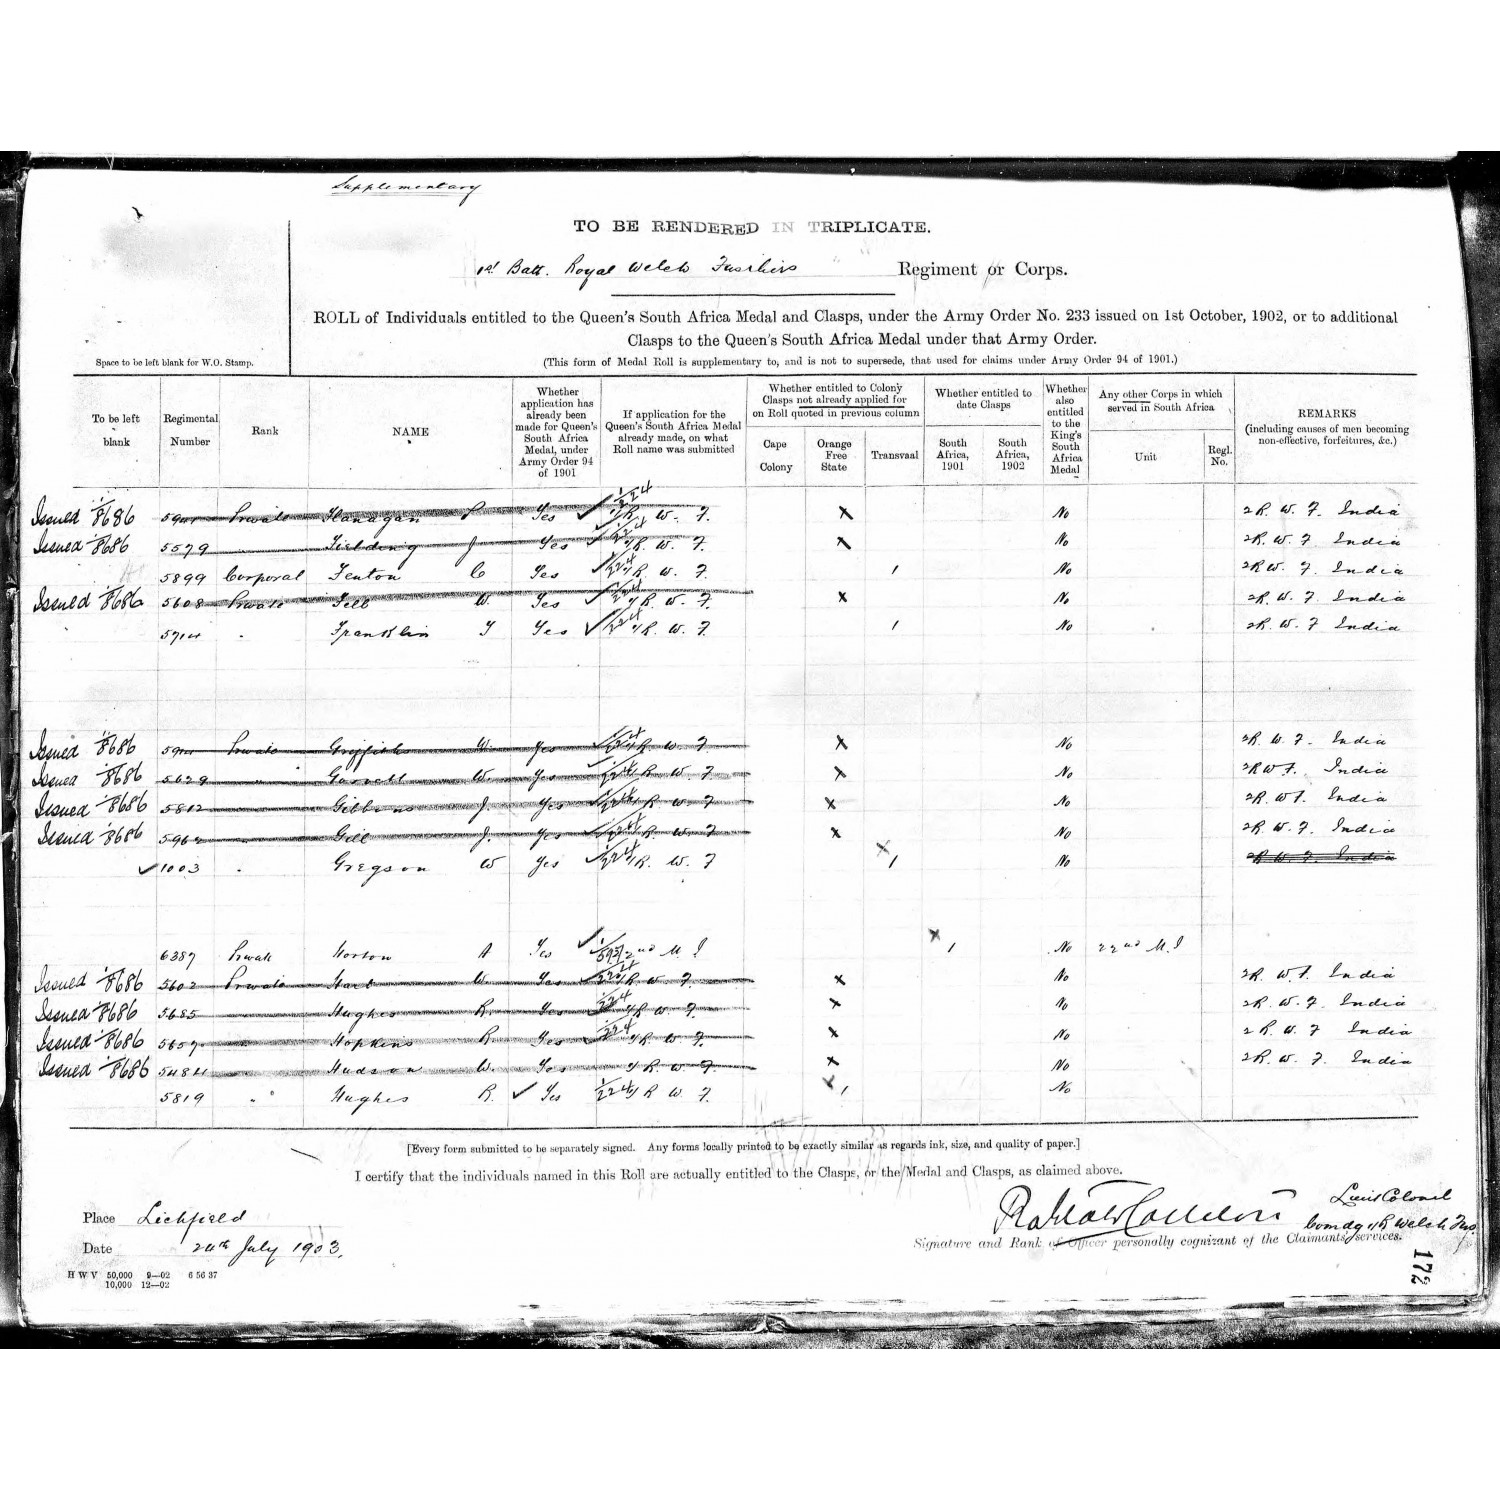 Supplementary
TO BE RENDERED IN TRIPLICATE.
1st Batt. Royal Welch Fusiliers Regiment or Corps.
ROLL of Individuals entitled to the Queen's South Africa Medal and Clasps, under the Army Order No. 233 issued on 1st October, 1902, or to additional
Clasps to the Queen's South Africa Medal under that Army Order.
(This form of Medal Roll is supplementary to, and is not to supersede, that used for claims under Army Order 94 of 1901.)
Space to be left blank for W.O. Stamp.
To be left blank
Regimental Number
Rank
NAME
Whether application has already been made for Queen's South Africa Medal, under Army Order 94 of 1901
If application for the Queen's South Africa Medal already made, on what Roll name was submitted
Whether entitled to Colony Clasps not already applied for on Roll quoted in previous column
Cape Colony
Orange Free State
Transvaal
Whether entitled to date Clasps
South Africa, 1901
South Africa, 1902
Whether also entitled to the King's South Africa Medal
Any other Corps in which served in South Africa
Unit
Regl. No.
REMARKS
(including causes of men becoming non-effective, forfeitures, &c.)
Issued 1/8686 Private Flanagan P Yes 1/224 1/R W. F. x No 2 R. W. F. India
Issued 1/8686 5579 Fielding J Yes 1/224 1/R. W. F. x No 2R. W. F India
5899 Corporal Fenton C Yes 1/224 1/R. W. F. 1 No 2RW. F. India
Issued 1/8686 5608 Private Fell W. Yes 1/224 1/R. W. F. x No 2R. W. F India
5714 " Franklin T Yes 1/224 1/R. W. F. 1 No 2R. W. F India
Issued 1/8686 Private Griffiths W. Yes 1/224 1/R W. F. x No 2R. W. F. India
Issued 1/8686 5629 " W. Yes 1/224 1/R W. F x No 2RWF. India
Issued 1/8686 5812 Gibbons J. Yes 1/224 1/R W. F x No 2R. WF. India
Issued 1/8686 5962 Gill J. Yes 1/224 1/R W. F x No 2R. W. F. India
1003 " Gregson W Yes 1/224 1/R. W. F x 1 No 2R W F India
6387 Private Horton A Yes 22nd M.I x 1 No 22nd M.I
Issued 1/8686 5602 Private W. Yes 1/224 1/R W. F. x No 2R. WF. India
Issued 1/8686 5685 Hughes R. Yes 1/224 1/R W. F. x No 2R. W. F. India
Issued 1/8686 5657 Hopkins R. Yes 1/224 1/R W. F. x No 2 R. W. F India
Issued 1/8686 5484 Hudson W. Yes 1/R W F x No 2R. W. F. India
5819 " Hughes R. Yes 1/224 1/R W. F. x 1 No
[Every form submitted to be separately signed. Any forms locally printed to be exactly similar as regards ink, size, and quality of paper.]
I certify that the individuals named in this Roll are actually entitled to the Clasps, or the Medal and Clasps, as claimed above.
Lieut Colonel
Place Lichfield
Comdg 1/R Welch Fus.
Date 24th July 1903.
Signature and Rank of Officer personally cognizant of the Claimants' services.
H W V 50,000 9—02 6 56 37
10,000 12—02
172